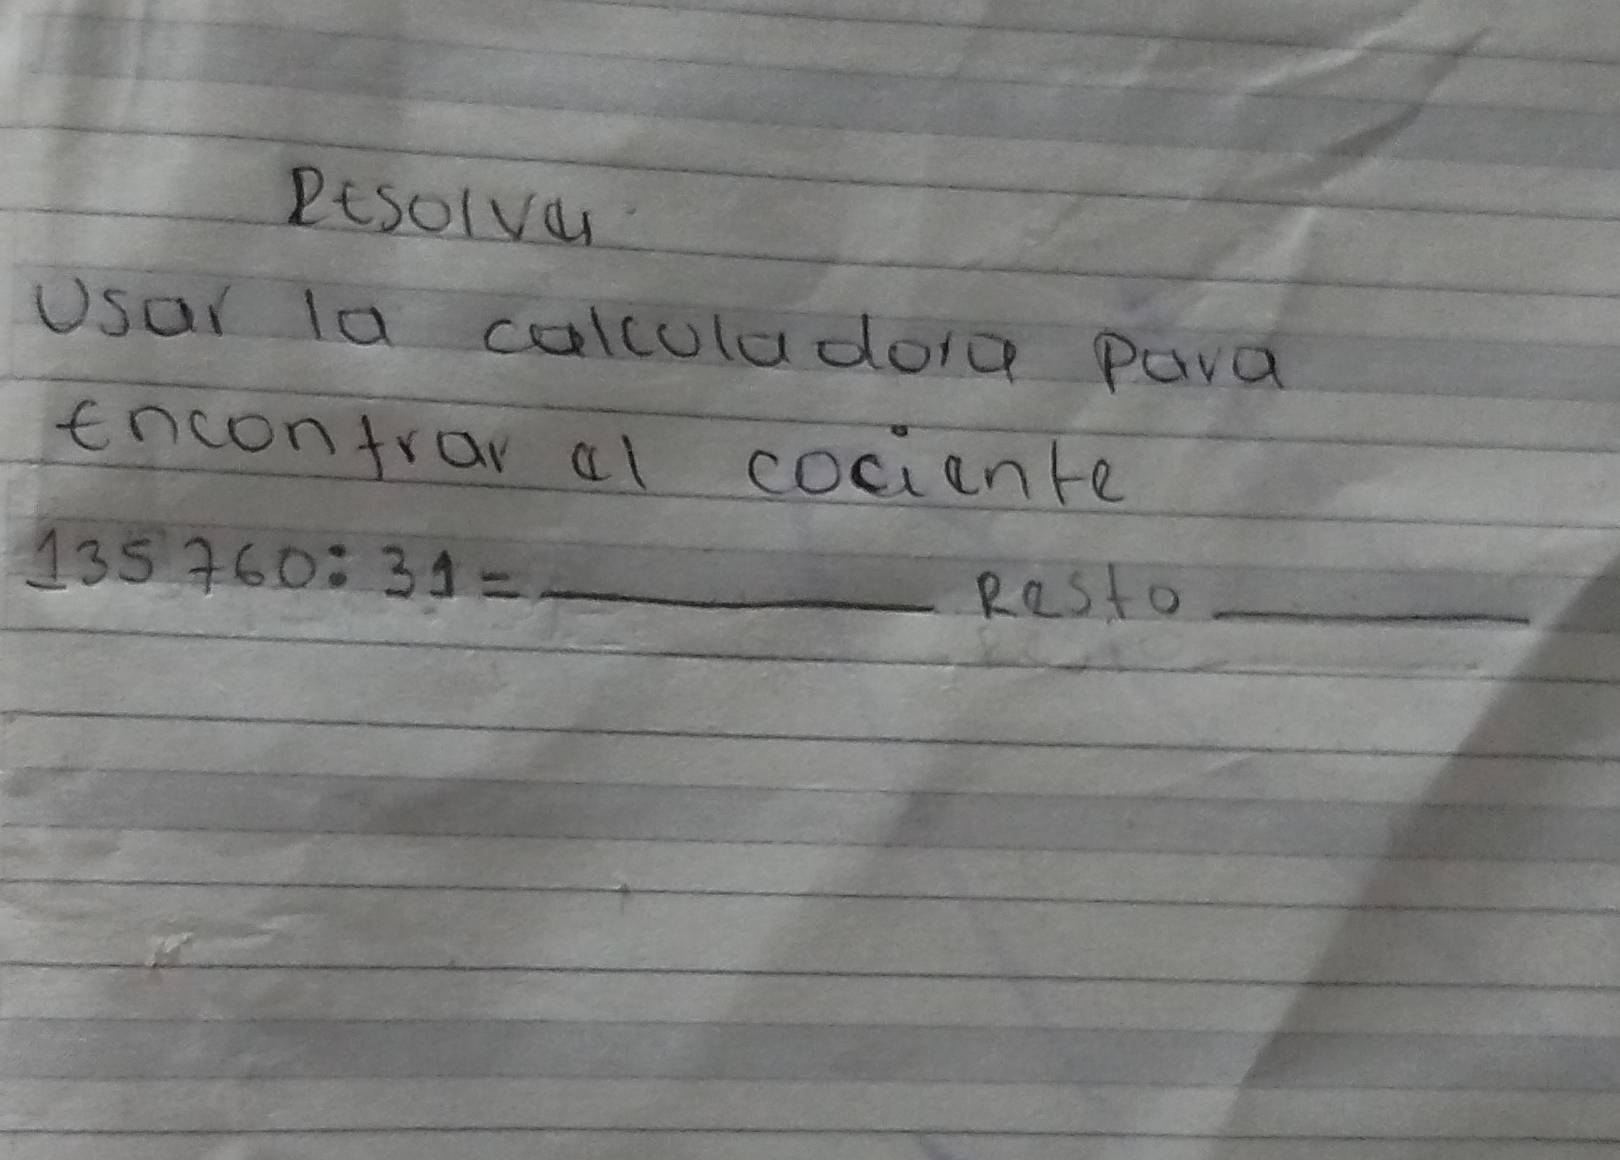 Resolver
Usar la calculadora para
encontrar el cociente
135 760: 31 = ____________ Resto __________